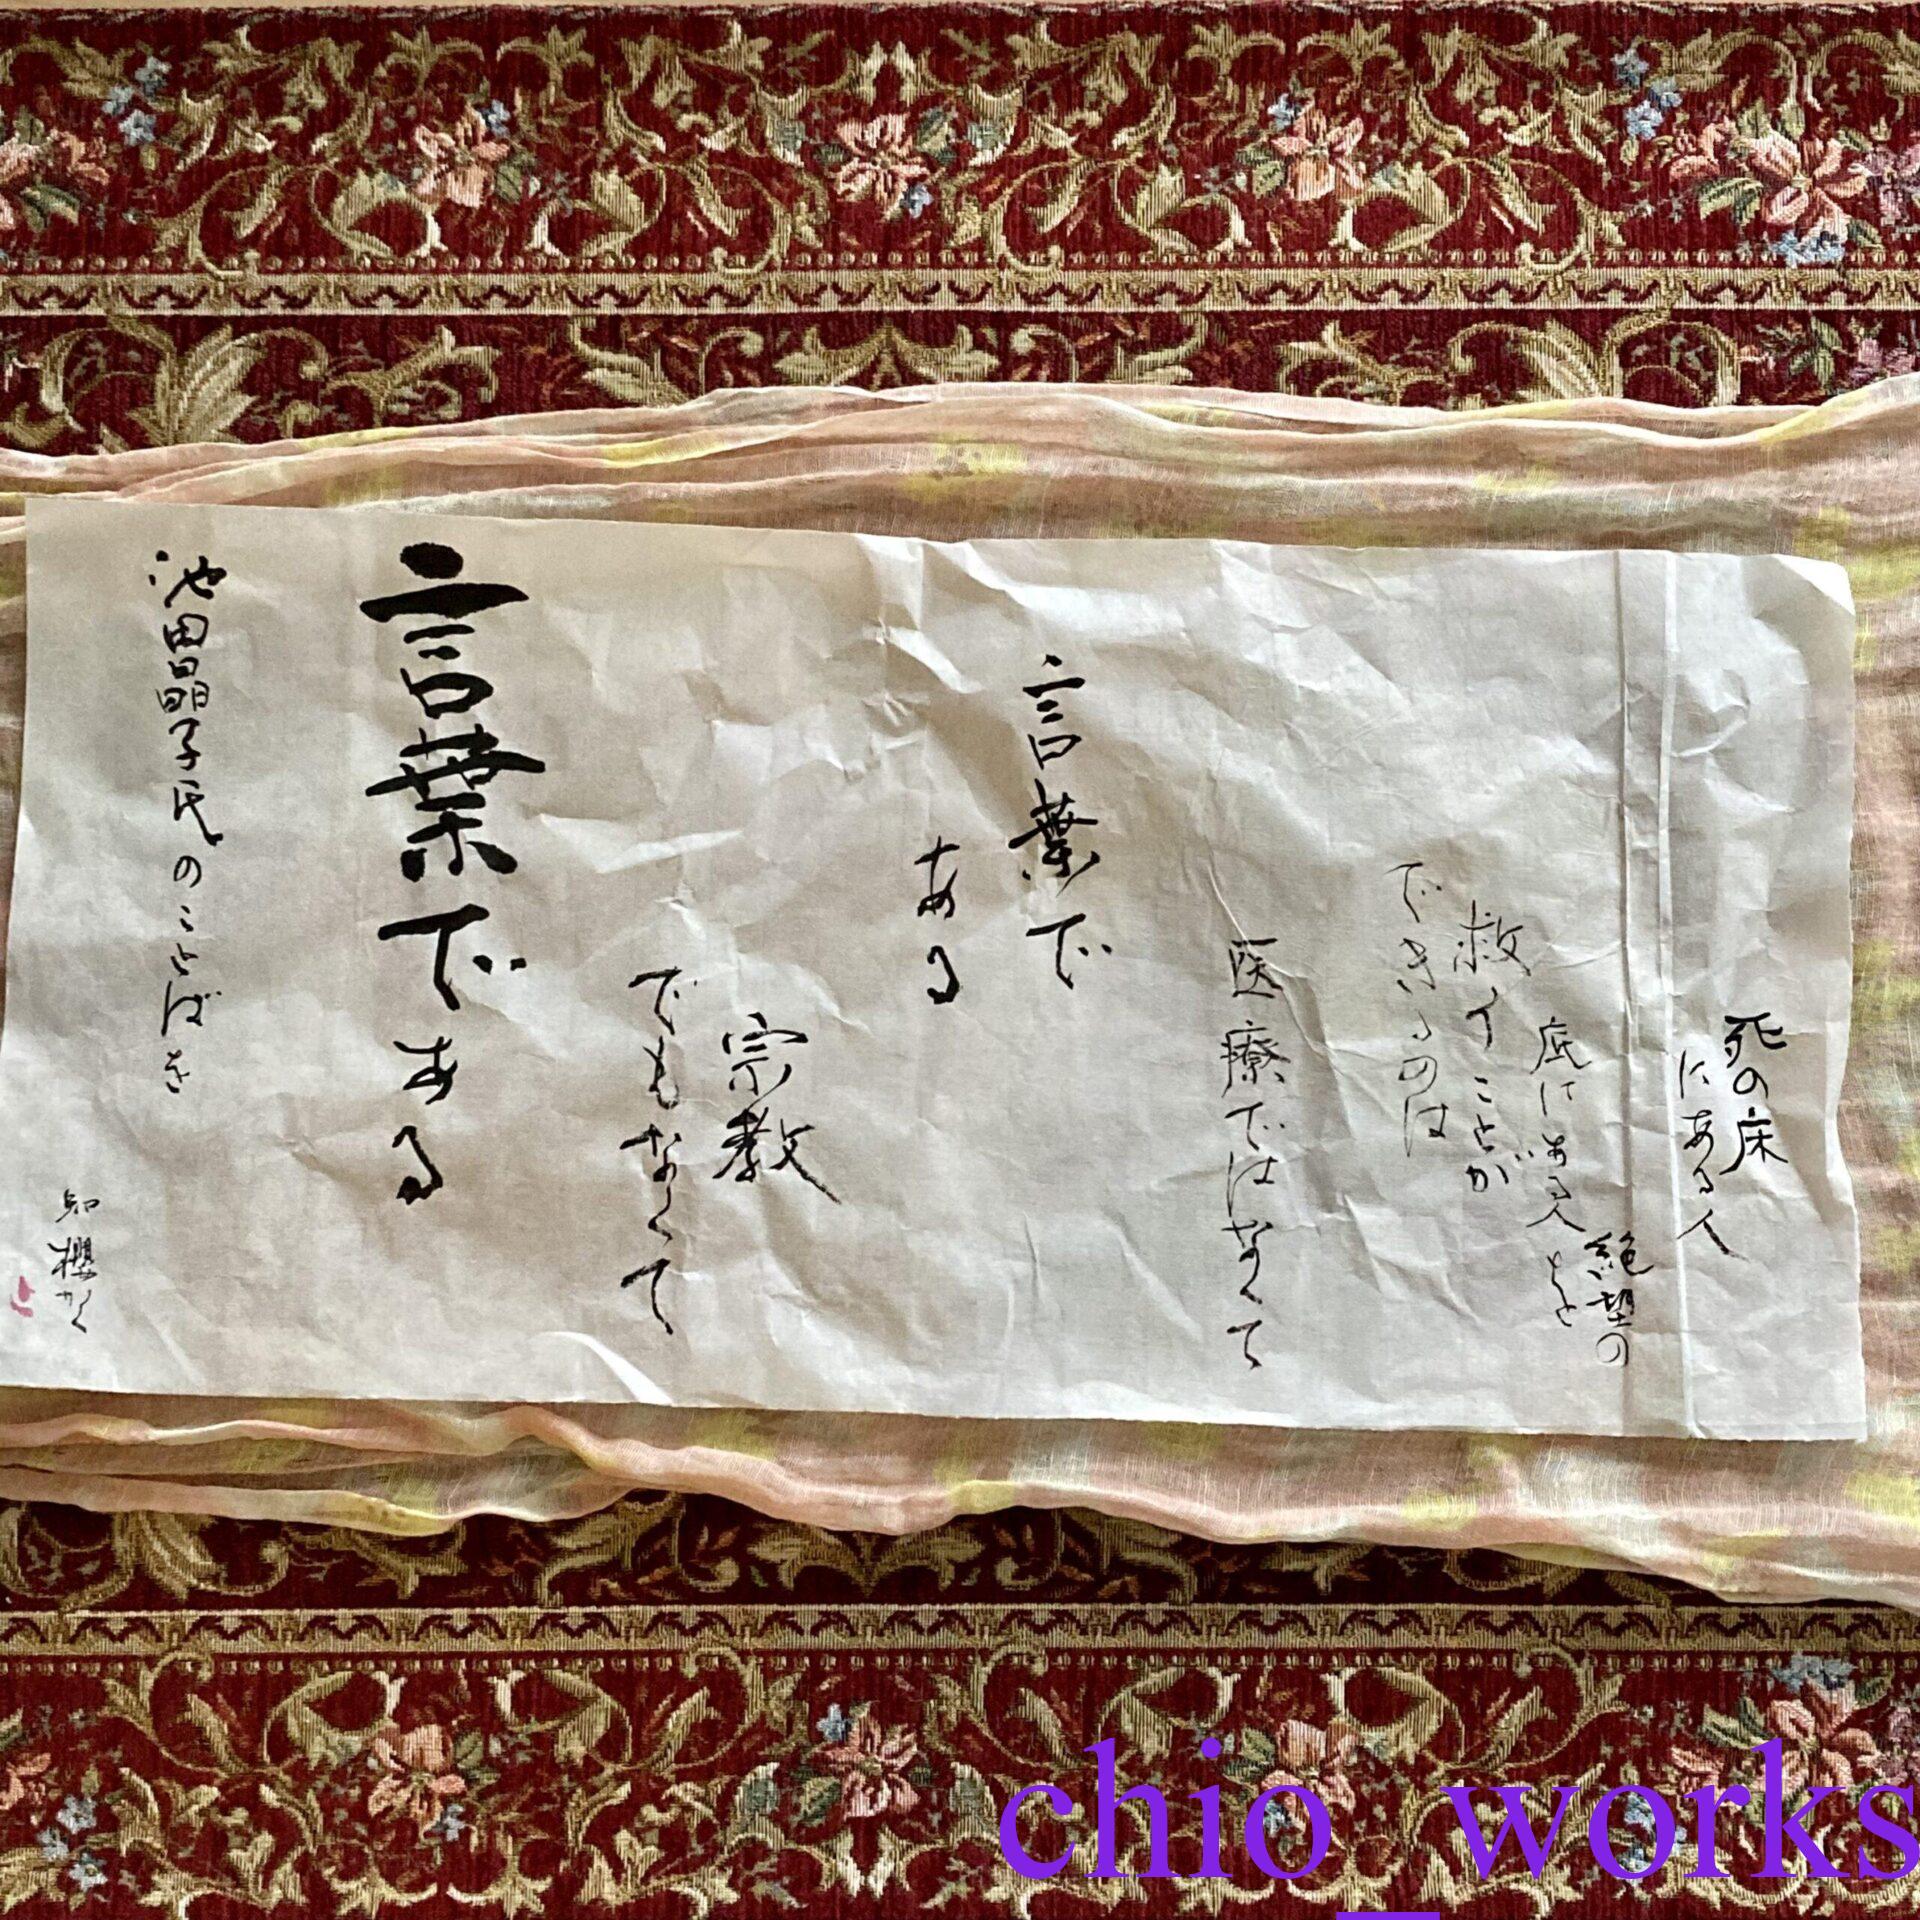 死の床
にある人
絶望の
底にある人を
救うことが
できるのは
医療ではなくて
言葉で
ある
宗教
でもなくて
言葉である
池田晶子氏のことばを
知櫻かく
chio_works